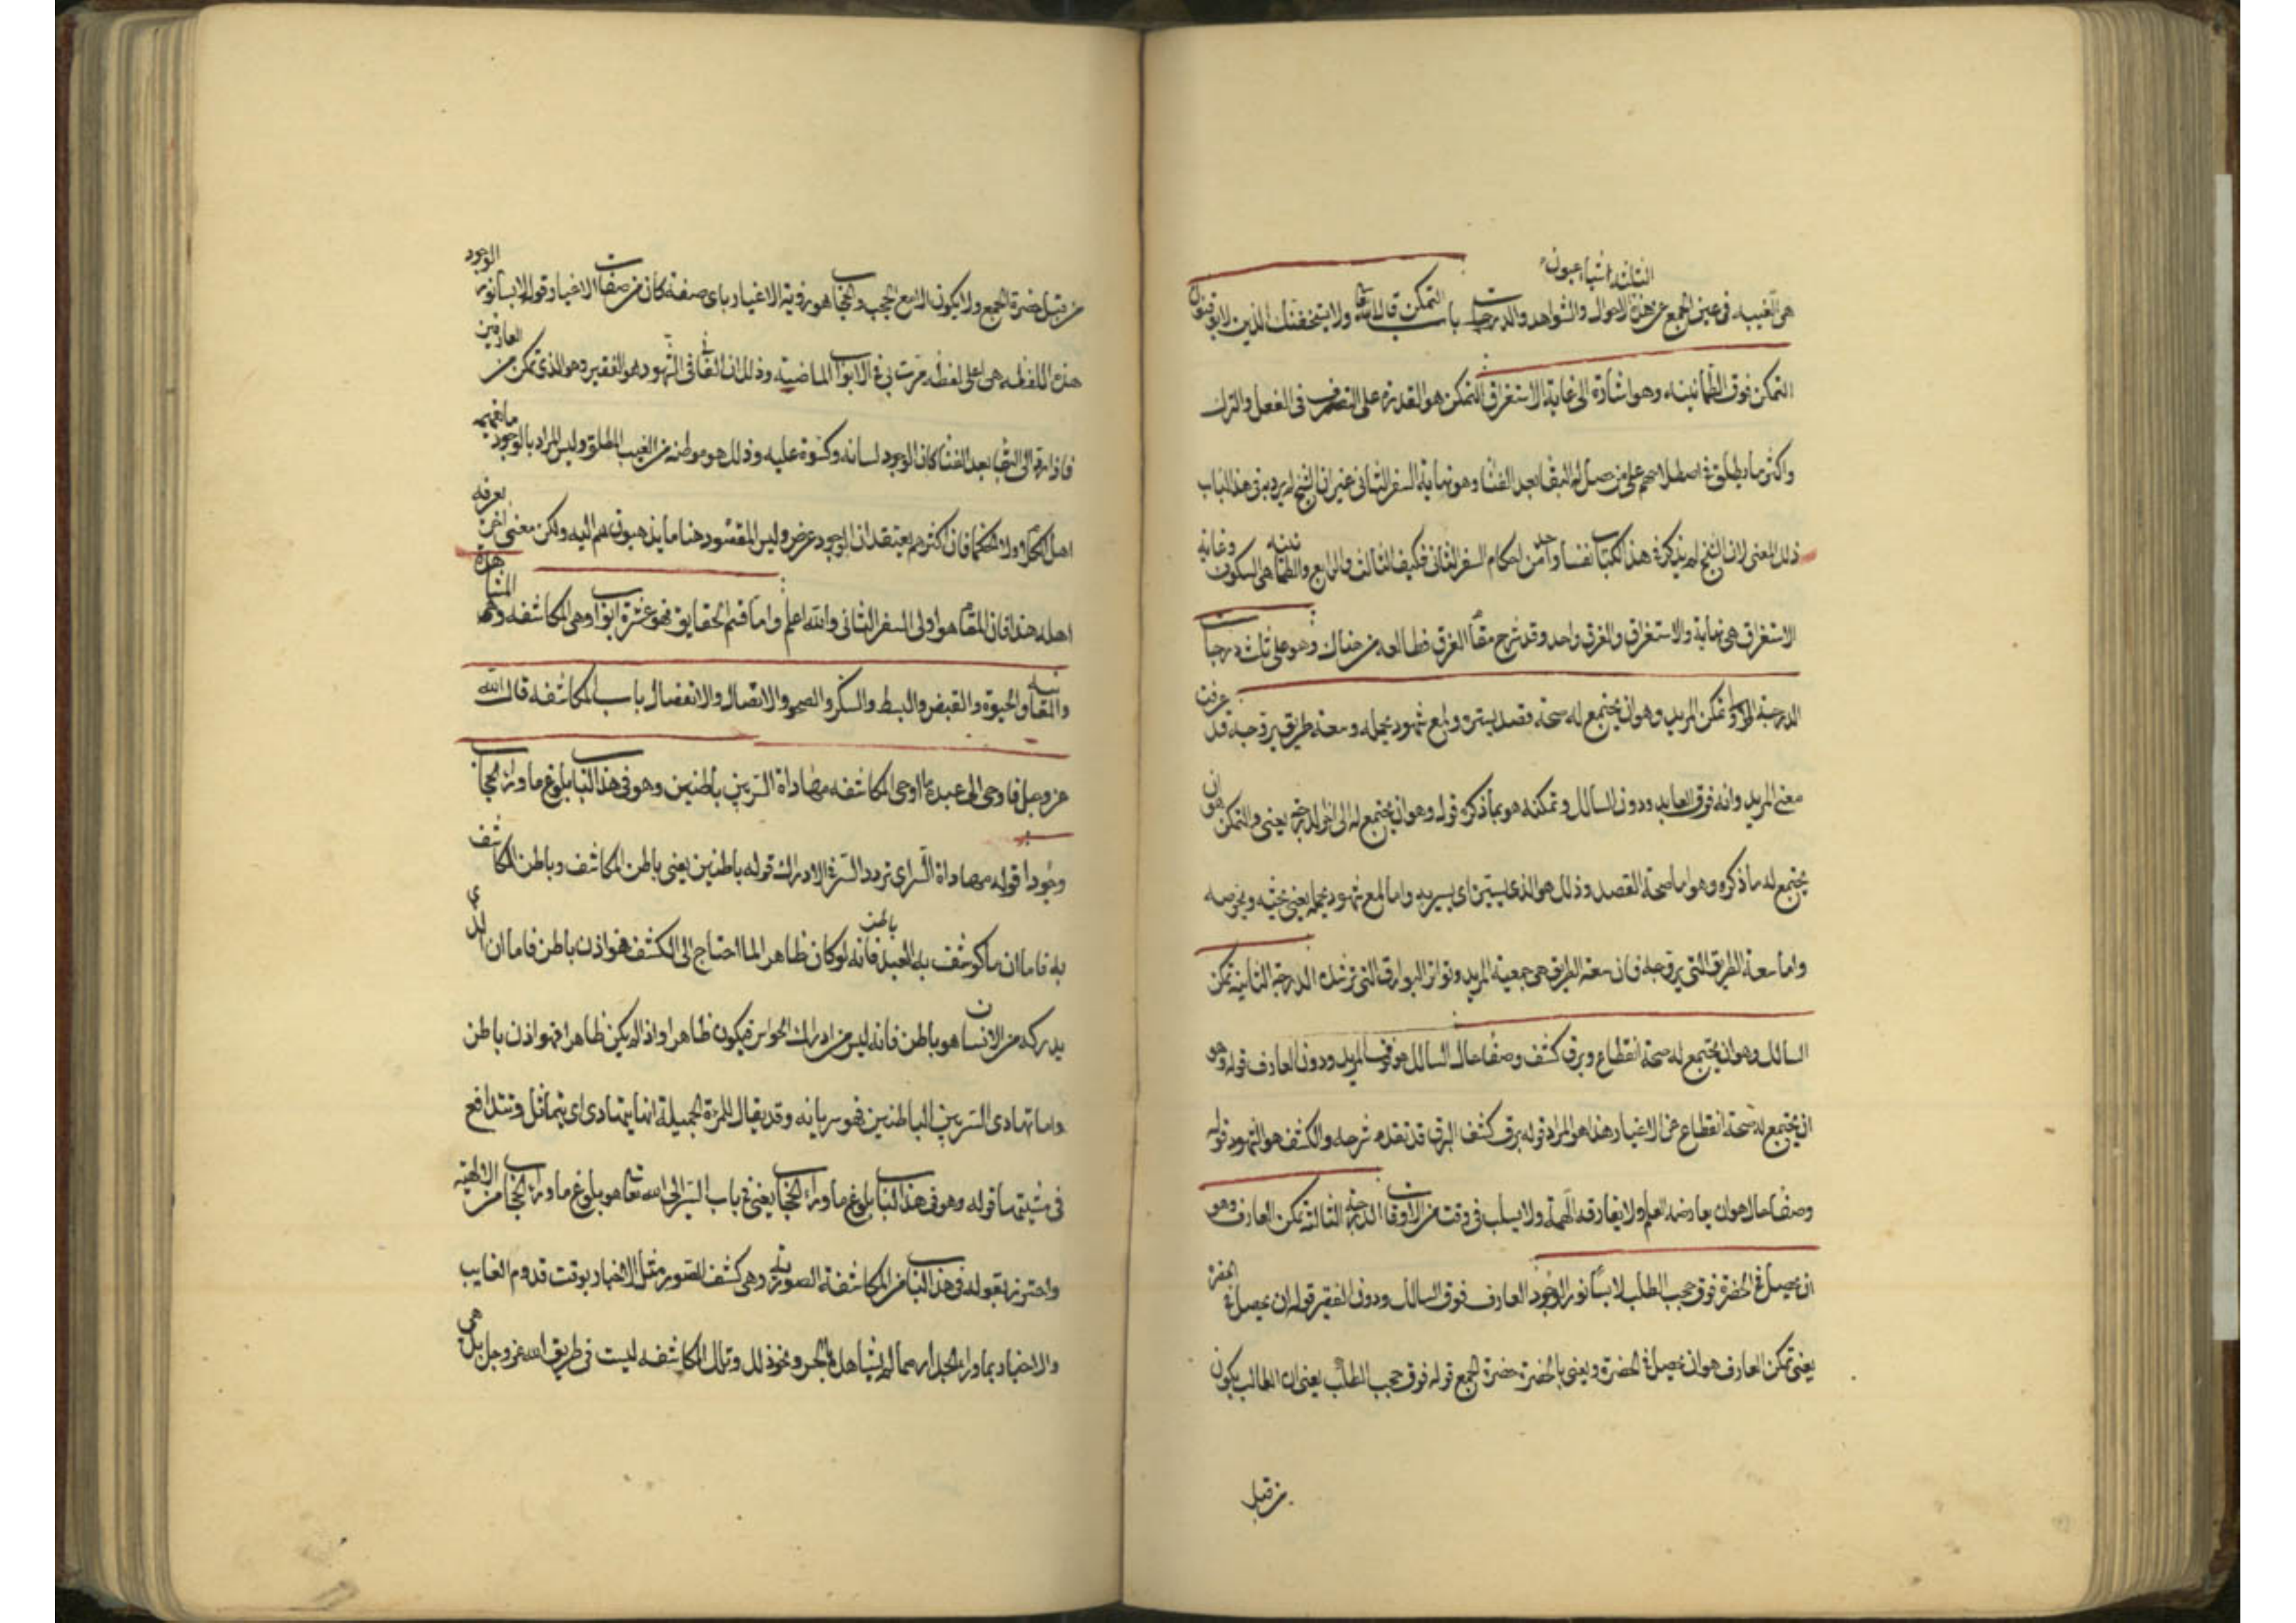 هى الغيبه فى عين الجمع عن هذه الاحوال والشواهد والدرجات الثلثه اشيا عيون باب التمكن قال الله تعا ولا يستخفنك الذين لا يوقنون
التمكن فوق الطمانينه وهو اشارة الى غاية الاستغراق التمكن هو القدرة على التصرف فى الفعل والترك
واكثر ما يطلق فى اصطلاحهم على من حصل له البقا بعد الفنا وهو نهاية السفر الثانى غير ان الشيخ لم يرد به فى هذا الباب
ذلك المعنى لان الشيخ لم يذكر فى هذا الكتاب نفسا واحد من احكام السفر الثانى فكيف الثالث والرابع والطمانينه هى السكون وغاية
الاستغراق هى نهاية والاستغراق والغرق واحد وقد شرح مقام الغرق فطالعه من هناك وهو على ثلث درجات
الدرجة الاولى تمكن المريد وهو ان يجتمع له صحة قصد يسيره ولمع شهود يحمله وسعة طريق يروحه قد عرفت
معنى المريد وانه فوق العابد ودون السالك وتمكنه هو بما ذكره قوله وهو ان يجتمع له الى اخر الدرجة يعنى والتمكن هو ان
يجتمع له ما ذكره وهو اما صحة القصد وذلك هو الذى يسيره اى يسير به واما لمع شهود يحمله يعنى يحثه ويحرصه
واما سعة الطريق التى يروحه فان سعة الطريق هى جمعية المريد وتواتر البوارق التى ترشده الدرجة الثانية تمكن
السالك وهو ان يجتمع له صحة انقطاع وبرق كشف وصفا حال السالك هو فوق المريد ودون العارف قوله وهو
ان يجتمع له صحة انقطاع عن الاغيار هذا هو المراد قوله برق كشف البرق قد تقدم شرحه والكشف هو الشهود قوله
وصفا حال هو ان يعارضه العلم ولا يفارقه الهمة ولا يسلب فى وقت من الاوقات الدرجة الثالثة تمكن العارف وهو
ان يحصل فى الحضرة فوق حجب الطلب لابسا نور الوجود العارف فوق السالك ودون الفقير قوله ان يحصل فى الحضرة
يعنى تمكن العارف هو ان يحصل فى الحضرة ويعنى بالحضرة حضرة الجمع قوله فوق حجب الطلب يعنى ان الطالب يكون
من قبل
من قبل حضرة الجمع ولا يكون الا مع الحجب والحجاب هو رؤية الاغيار باى صفة كان من صفات الاغيار قوله لابسا نور الوجود
هذه اللفظه هى اعلى لفظه مرت بى فى الابواب الماضية وذلك ان الفانى فى الشهود هو الفقير وهو الذى تمكن من العارفين
فاذا رقى الى البقا بعد الفنا كان الوجود لسانه وكسوة عليه وذلك هو موطنه من الغيب المطلق وليس المراد بالوجود ما يفهمه
اهل الكلام ولا الحكما فان اكثرهم يعتقد ان الوجود عرض وليس المقصود هنا ما يذهبون هم اليه ولكن معنى اخر يعرفه
اهله هذا فان المقام هو اولى السفر الثانى والله اعلم واما قسم الحقايق فهو عشرة ابواب وهى المكاشفه والمشاهدة
والمعاينه والحيوة والقبض والبسط والسكر والصحو والاتصال والانفصال باب المكاشفه قال الله
عز وجل فاوحى الى عبده ما اوحى المكاشفه مهاداة السر بين باطنين وهو فى هذا الباب بلوغ ما وراء الحجاب
وجودا قوله مهاداة السر اى تردد السر فى الادراك قوله باطنين يعنى باطن المكاشف وباطن المكاشف
به فاما ان ما كوشف به العبد باطن فانه لو كان ظاهرا لما احتاج الى الكشف فهو اذن باطن فاما ان الذى
يدركه من الانسان هو باطن فانه ليس من ادراك الحواس فيكون ظاهرا واذا لم يكن ظاهرا فهو اذن باطن
واما تهادى السر بين الباطنين فهو سريانه وقد يقال للمرة الجميلة انها يتهادى اى يتماثل وتتدافع
فى مشيتها قوله وهو فى هذا الباب بلوغ ما وراء الحجاب يعنى فى باب السير الى الله تعا هو بلوغ ما وراء الحجاب من الالهية
واحترز بقوله فى هذا الباب من المكاشفة الصورية وهى كشف الصور مثل الاخبار بوقت قدوم الغايب
والاخبار بما وراء الجدار مما لم يشاهد فى الحس ونحو ذلك وتلك المكاشفه ليست فى طريق الله عز وجل بل هى